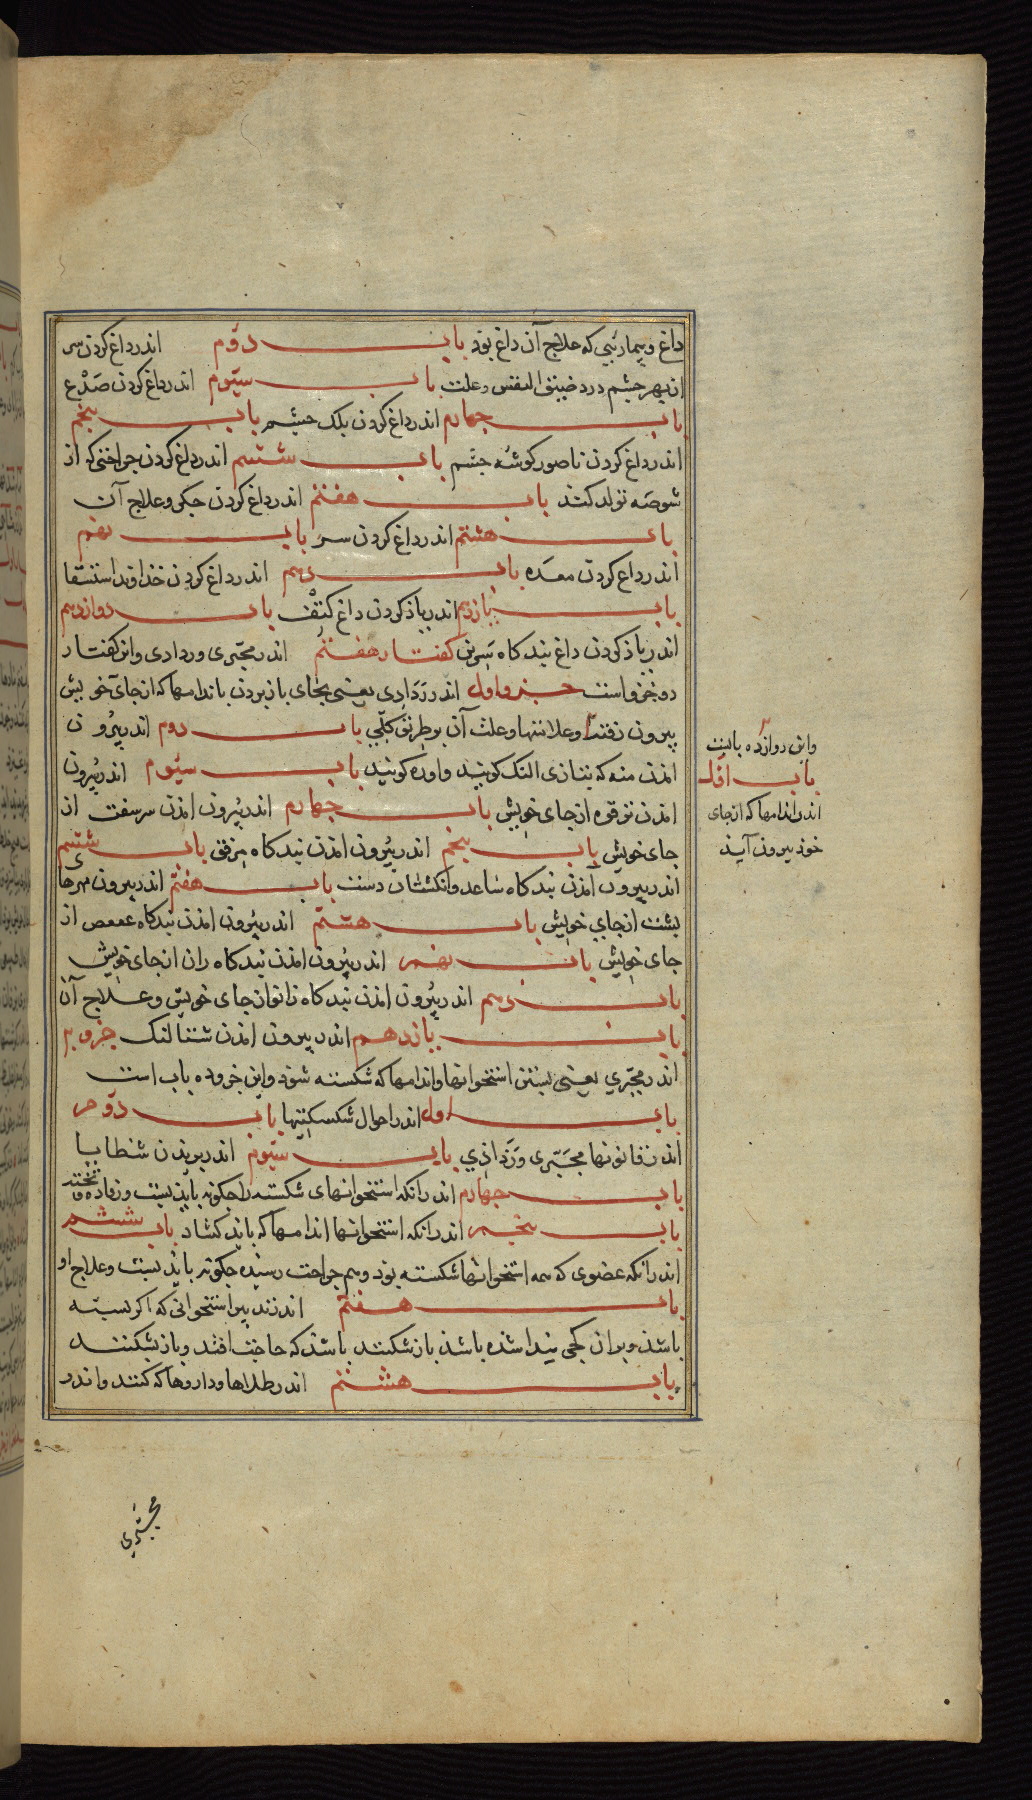 داغ و بیماریی که علاج آن داغ بود باب دوم اندر داغ کردن سر
از بهر چشم درد ضیق النفس و علت باب سیوم اندر داغ کردن صدغ
باب چهارم اندر داغ کردن پلک چشم باب پنجم
اندر داغ کردن ناصور کوشه چشم باب ششم اندر داغ کردن جراحتی که از
شوصه تولد کند باب هفتم اندر داغ کردن جکر و علاج آن
باب هشتم اندر داغ کردن سپر باب نهم
اندر داغ کردن معده باب دهم اندر داغ کردن خداوند استسقا
باب یازدهم اندر یاذ کردن داغ کتف باب دوازدهم
اندر یاذ کردن داغ بندکاه سرین کفتار هفتم اندر مجبری و ردادی و این کفتار
دو جزو است جزو اول اندر ردادی یعنی بجای باز بردن باندامها که از جای خویش
بیرون رفته و علامتها و علت آن بر طریق کلی باب دوم اندر بیرون
امدن منه که بتازی الفک کویند و اوره کویند باب سیوم اندر بیرون
امدن ترقوه از جای خویش باب چهارم اندر بیرون امدن سر سفت از
جای خویش باب پنجم اندر بیرون امدن بندکاه مرفق باب ششم
اندر بیرون آمدن بندکاه ساعد و انکشتان دست باب هفتم اندر بیرون مهرهای
پشت از جای خویش باب هشتم اندر بیرون امدن بندکاه عصعص از
جای خویش باب نهم اندر بیرون امدن بندکاه ران از جای خویش
باب دهم اندر بیرون امدن بندکاه زانو از جای خویش و علاج آن
باب یازدهم اندر بیرون امدن شتالنک جزو ۲
اندر مجبری یعنی بستن استخوانها و اندامها که شکسته شود و این جزو ده باب است
باب اول اندر احوال شکستکیها باب دوم
اندر قانونها مجبری و ردادی باب سیوم اندر بریدن شظایا
باب چهارم اندر انکه استخوانهای شکسته را چکونه باید بست و رفاده و تخته
باب پنجم اندر انکه استخوانها اندامها که باید کشاد باب ششم
اندر انکه عضوی که همه استخوانها شکسته بود و هم جراحت رسیده چکونه باید بست و علاج او
باب هفتم اندر تدبیر استخوانی که اکر بسته
باشد و بران کجی پیدا شده باشد باز شکسته باشد که حاجت افتد و باز بشکنند
باب هشتم اندر طلاها و داروها که کنند و اندر
و این دوازده بابست
باب اول
اندر اندامها که از جای
خود بیرون آید
مجبری